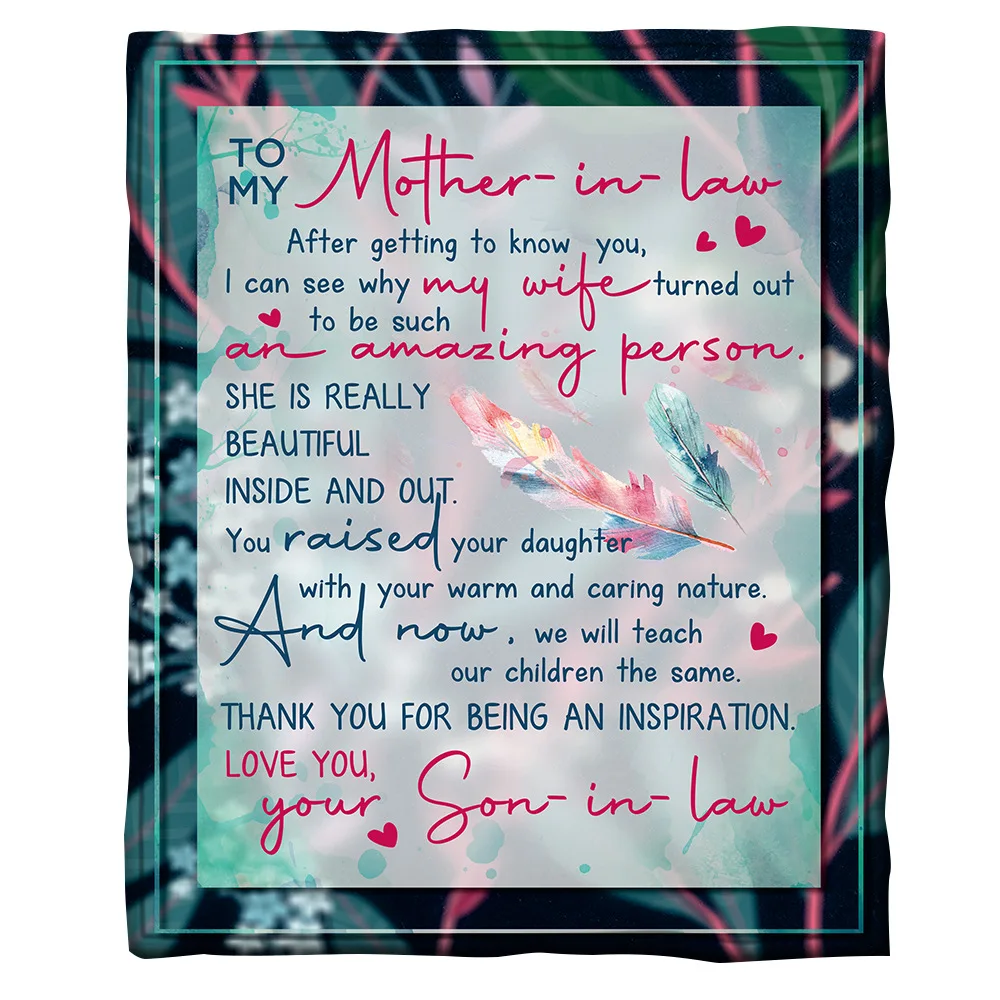 TO MY Mother-in-law
After getting to know you,
I can see why my wife turned out
to be such
an amazing person.
SHE IS REALLY
BEAUTIFUL
INSIDE AND OUT.
You raised your daughter
with your warm and caring nature.
And now, we will teach
our children the same.
THANK YOU FOR BEING AN INSPIRATION.
LOVE YOU,
your Son-in-law